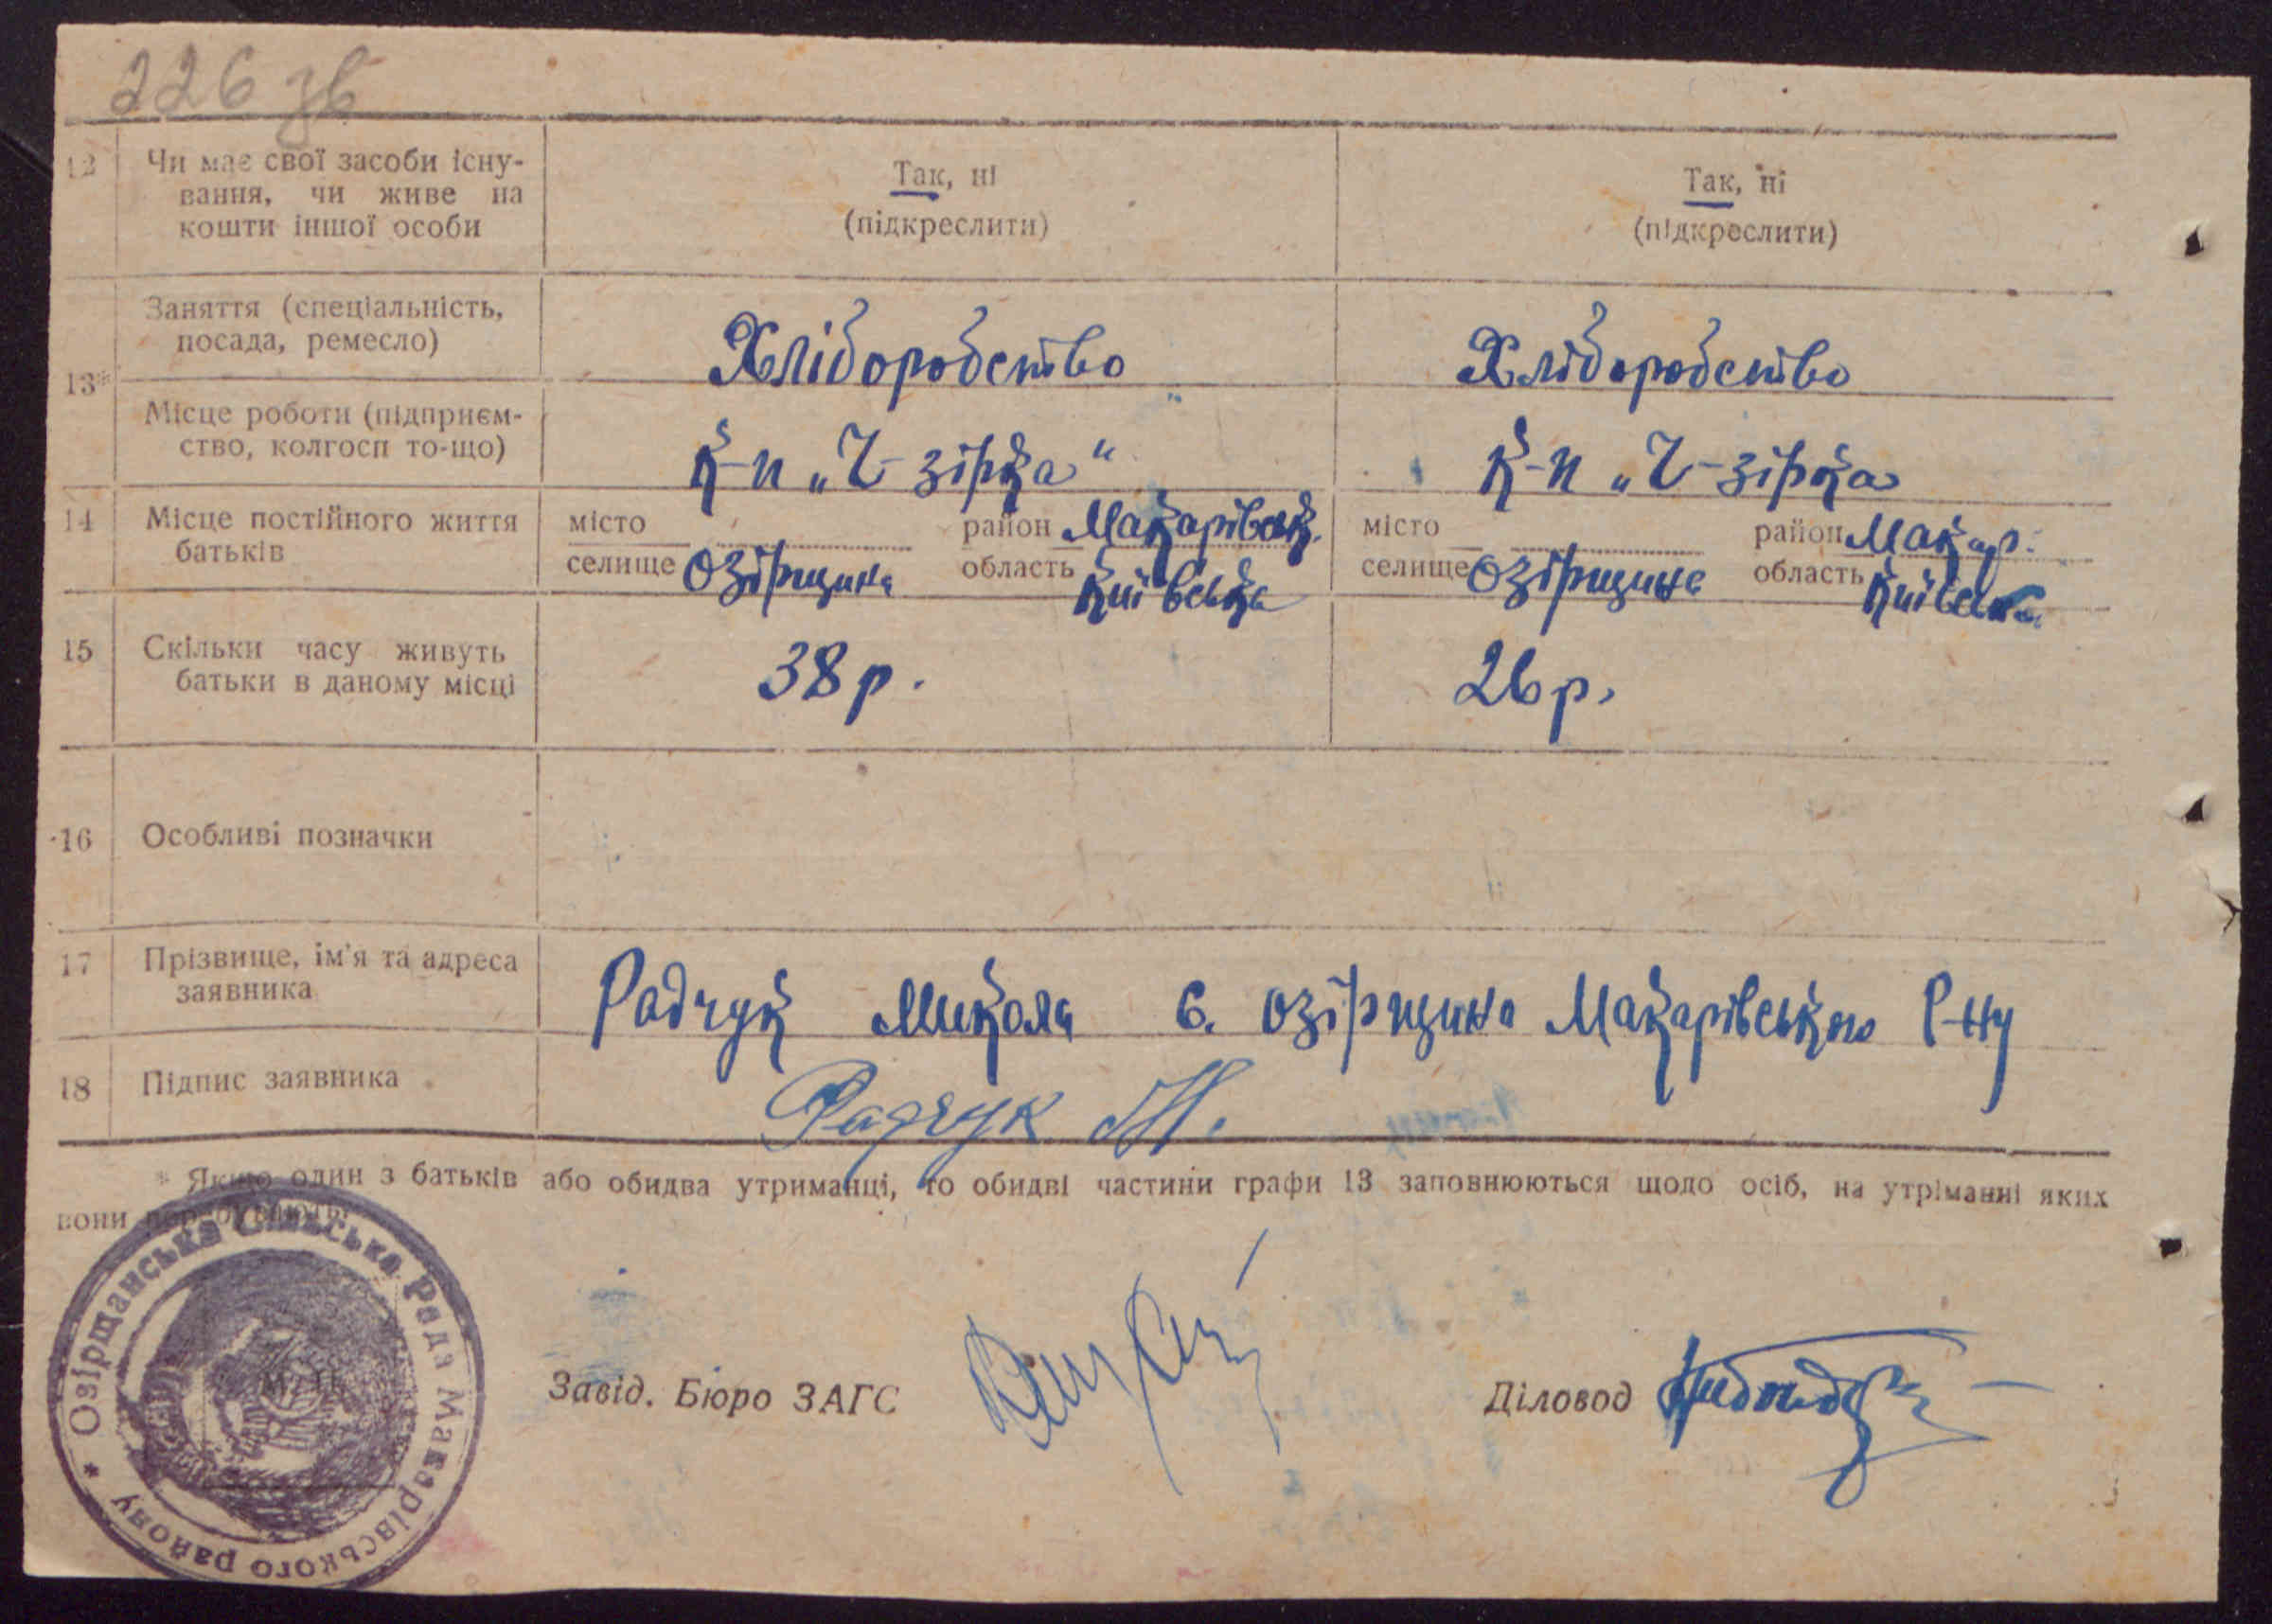 226 зв
12 Чи має свої засоби існу-
вання, чи живе на
кошти іншої особи
Так, ні
(підкреслити)
Так, ні
(підкреслити)
13*
Заняття (спеціальність,
посада, ремесло)
Хліборобство
Хліборобство
Місце роботи (підприєм-
ство, колгосп то-що)
К-п „Ч-зірка“
К-п „Ч-зірка
14 Місце постійного життя
батьків
місто район Макарівськ.
селище Озірщина область Київська
місто район Макар.
селище Озірщина область Київська
15 Скільки часу живуть
батьки в даному місці
38 р.
26 р.
16 Особливі позначки
17 Прізвище, ім'я та адреса
заявника
Радчук Микола с. Озірщина Макарівського Р-ну
18 Підпис заявника
Радчук М.
* Якщо один з батьків або обидва утриманці, то обидві частини графи 13 заповнюються щодо осіб, на утріманні яких
вони перебувають.
* Озірщанська Сільська Рада Макарівського району
Завід. Бюро ЗАГС
Діловод